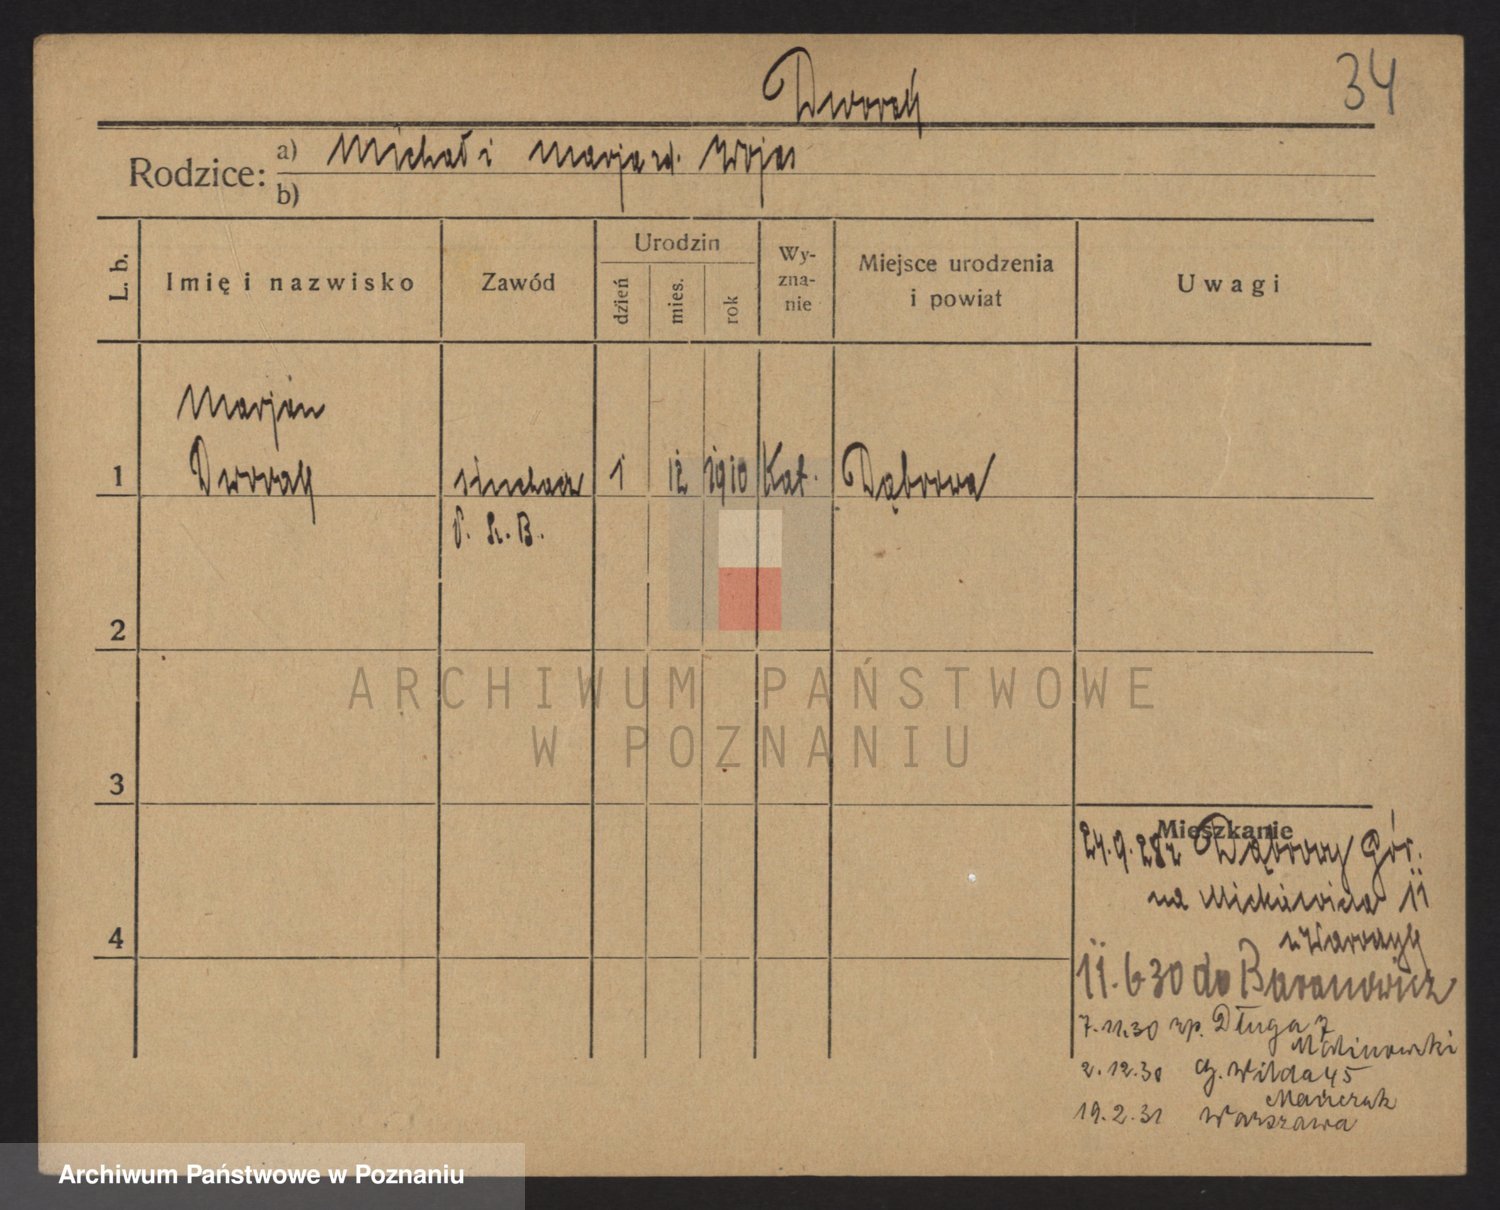 34
Dworak
Rodzice: a) Michał i Marja zd. Wojas
b)
L. b.
Imię i nazwisko
Zawód
Urodzin
dzień
mies.
rok
Wy-
zna-
nie
Miejsce urodzenia
i powiat
Uwagi
Marjan
1 Dworak słuchacz 1 12 1910 Kat. Dąbrowa
P. S. B.
2
ARCHIWUM PAŃSTWOWE
W POZNANIU
3
Mieszkanie
24.9.28 z Dąbrowy Gór.
na Mickiewicza 11
4
11.6 30 do Baranowicz
7.11.30 Długa 7
Malinowski
2.12.30 Wilda 45
19.2.31 Warszawa
Archiwum Państwowe w Poznaniu